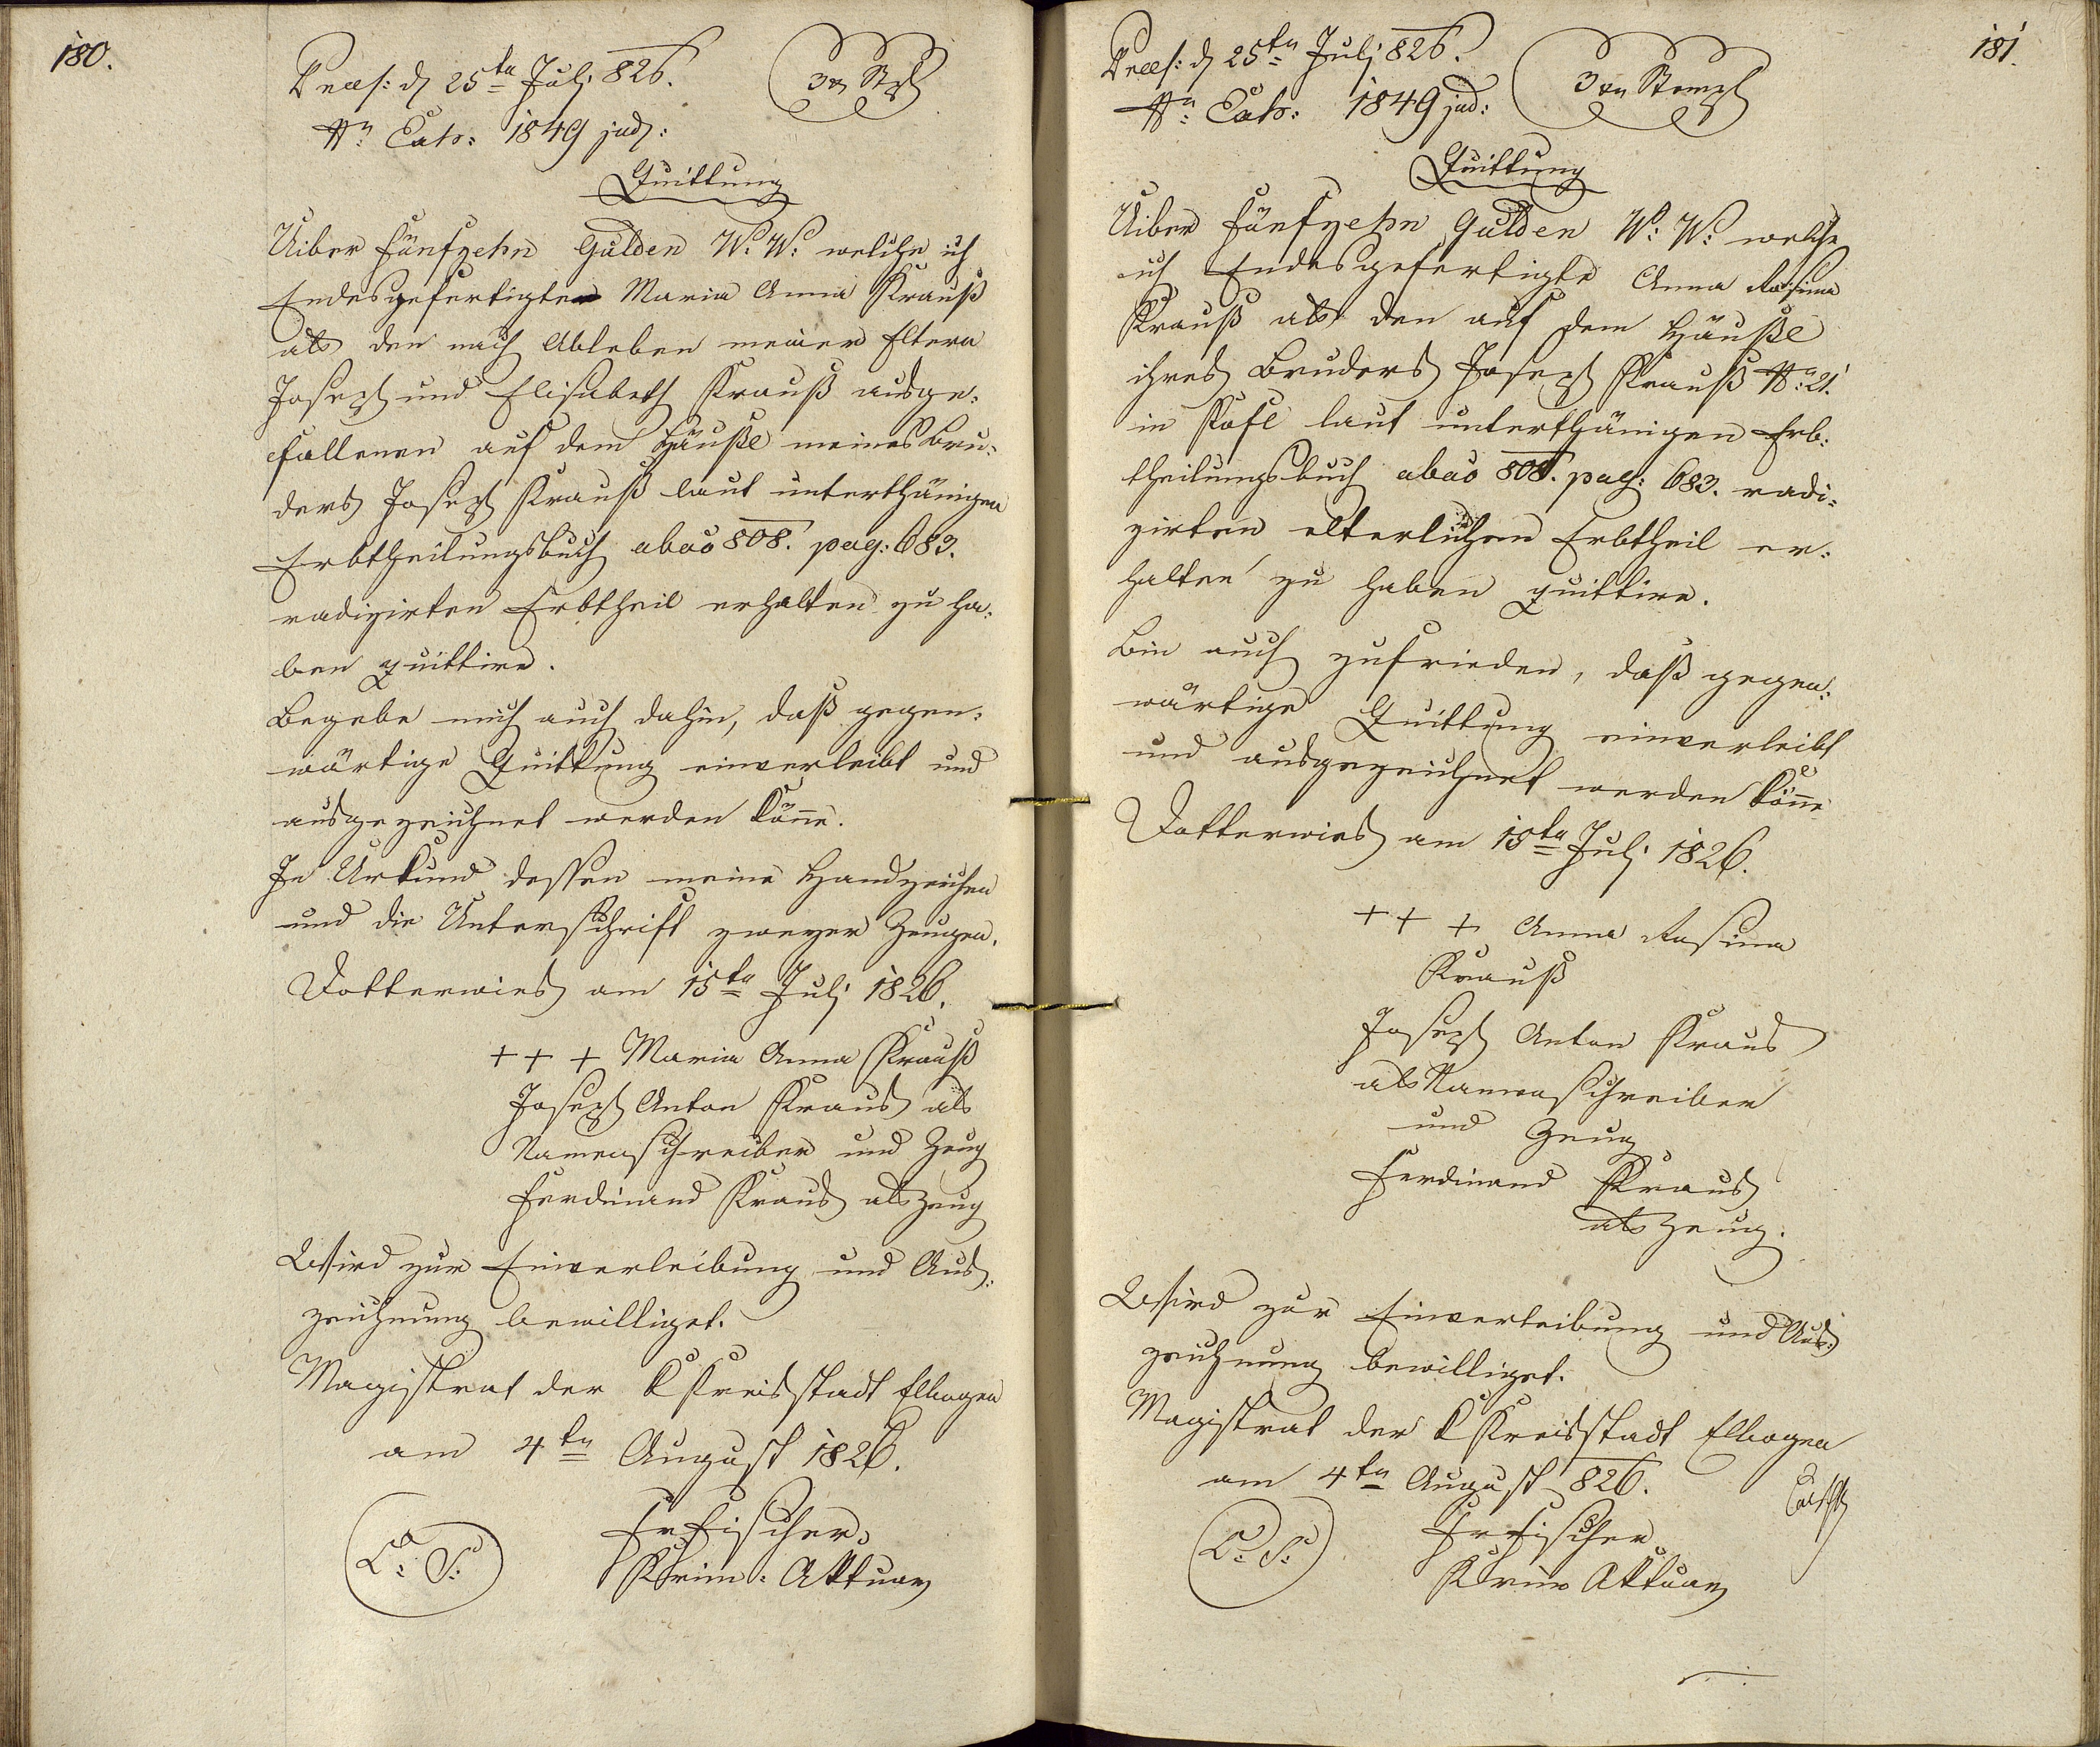 180.
Præs: d 25ten Juli 826.
3 xr Stpl
Nr: Exh: 1849 jud:
Quittung
Uiber fünfzehn Gulden W: W: welche ich
Endesgefertigte Maria Anna Krauß
als den nach Ableben meiner Eltern
Joseph und Elisabeth Krauß ausge-
fallenen auf dem Häußl meines Bru-
ders Joseph Krauß laut unterthänigen
Erbtheilungsbuch ab ao 808. pag: 683.
radizirten Erbtheil erhalten zu ha-
ben quittire.
Begebe mich auch dahin, daß gegen-
wärtige Quittung einverleibt und
ausgezeichnet werden könne.
In Urkund dessen meine Handzeichen
und die Unterschrift zweyer Zeugen.
Dotterwies am 15ten Juli 1826.
+ + + Maria Anna Krauß
Joseph Anton Kraus als
Namensschreiber und Zeug
Ferdinand Kraus als Zeug
Wird zur Einverleibung und Aus-
zeichnung bewilliget.
Magistrat der K Kreisstadt Elbogen
am 4ten August 1826.
L: S:
Fr Fischer
Krim: Aktuar
181.
Præs: d 25ten Juli 826.
3 xr Stempl
Nr: Exh: 1849 jud:
Quittung
Uiber fünfzehn Gulden W: W: welche
ich Endesgefertigte Anna Rosina
Krauß als den auf dem Häußl
ihres Bruders Joseph Krauß Nr: 21.
in laut unterthänigen Erb-
theilungsbuch ab ao 808. pag: 683. radi-
zirten elterlichen Erbtheil er-
halten zu haben quittire.
Bin auch zufrieden, daß gegen-
wärtige Quittung einverleibt
und ausgezeichnet werden könne
Dotterwies am 15ten Juli 1826.
+ + + Anna Rosina
Krauß
Joseph Anton Kraus
als Namensschreiber
und Zeug
Ferdinand Kraus
als Zeug.
Wird zur Einverleibung und Aus-
zeichnung bewilliget.
Magistrat der K Kreisstadt Elbogen
am 4ten August 826.
L: S:
Fr Fischer
Krim Aktuar